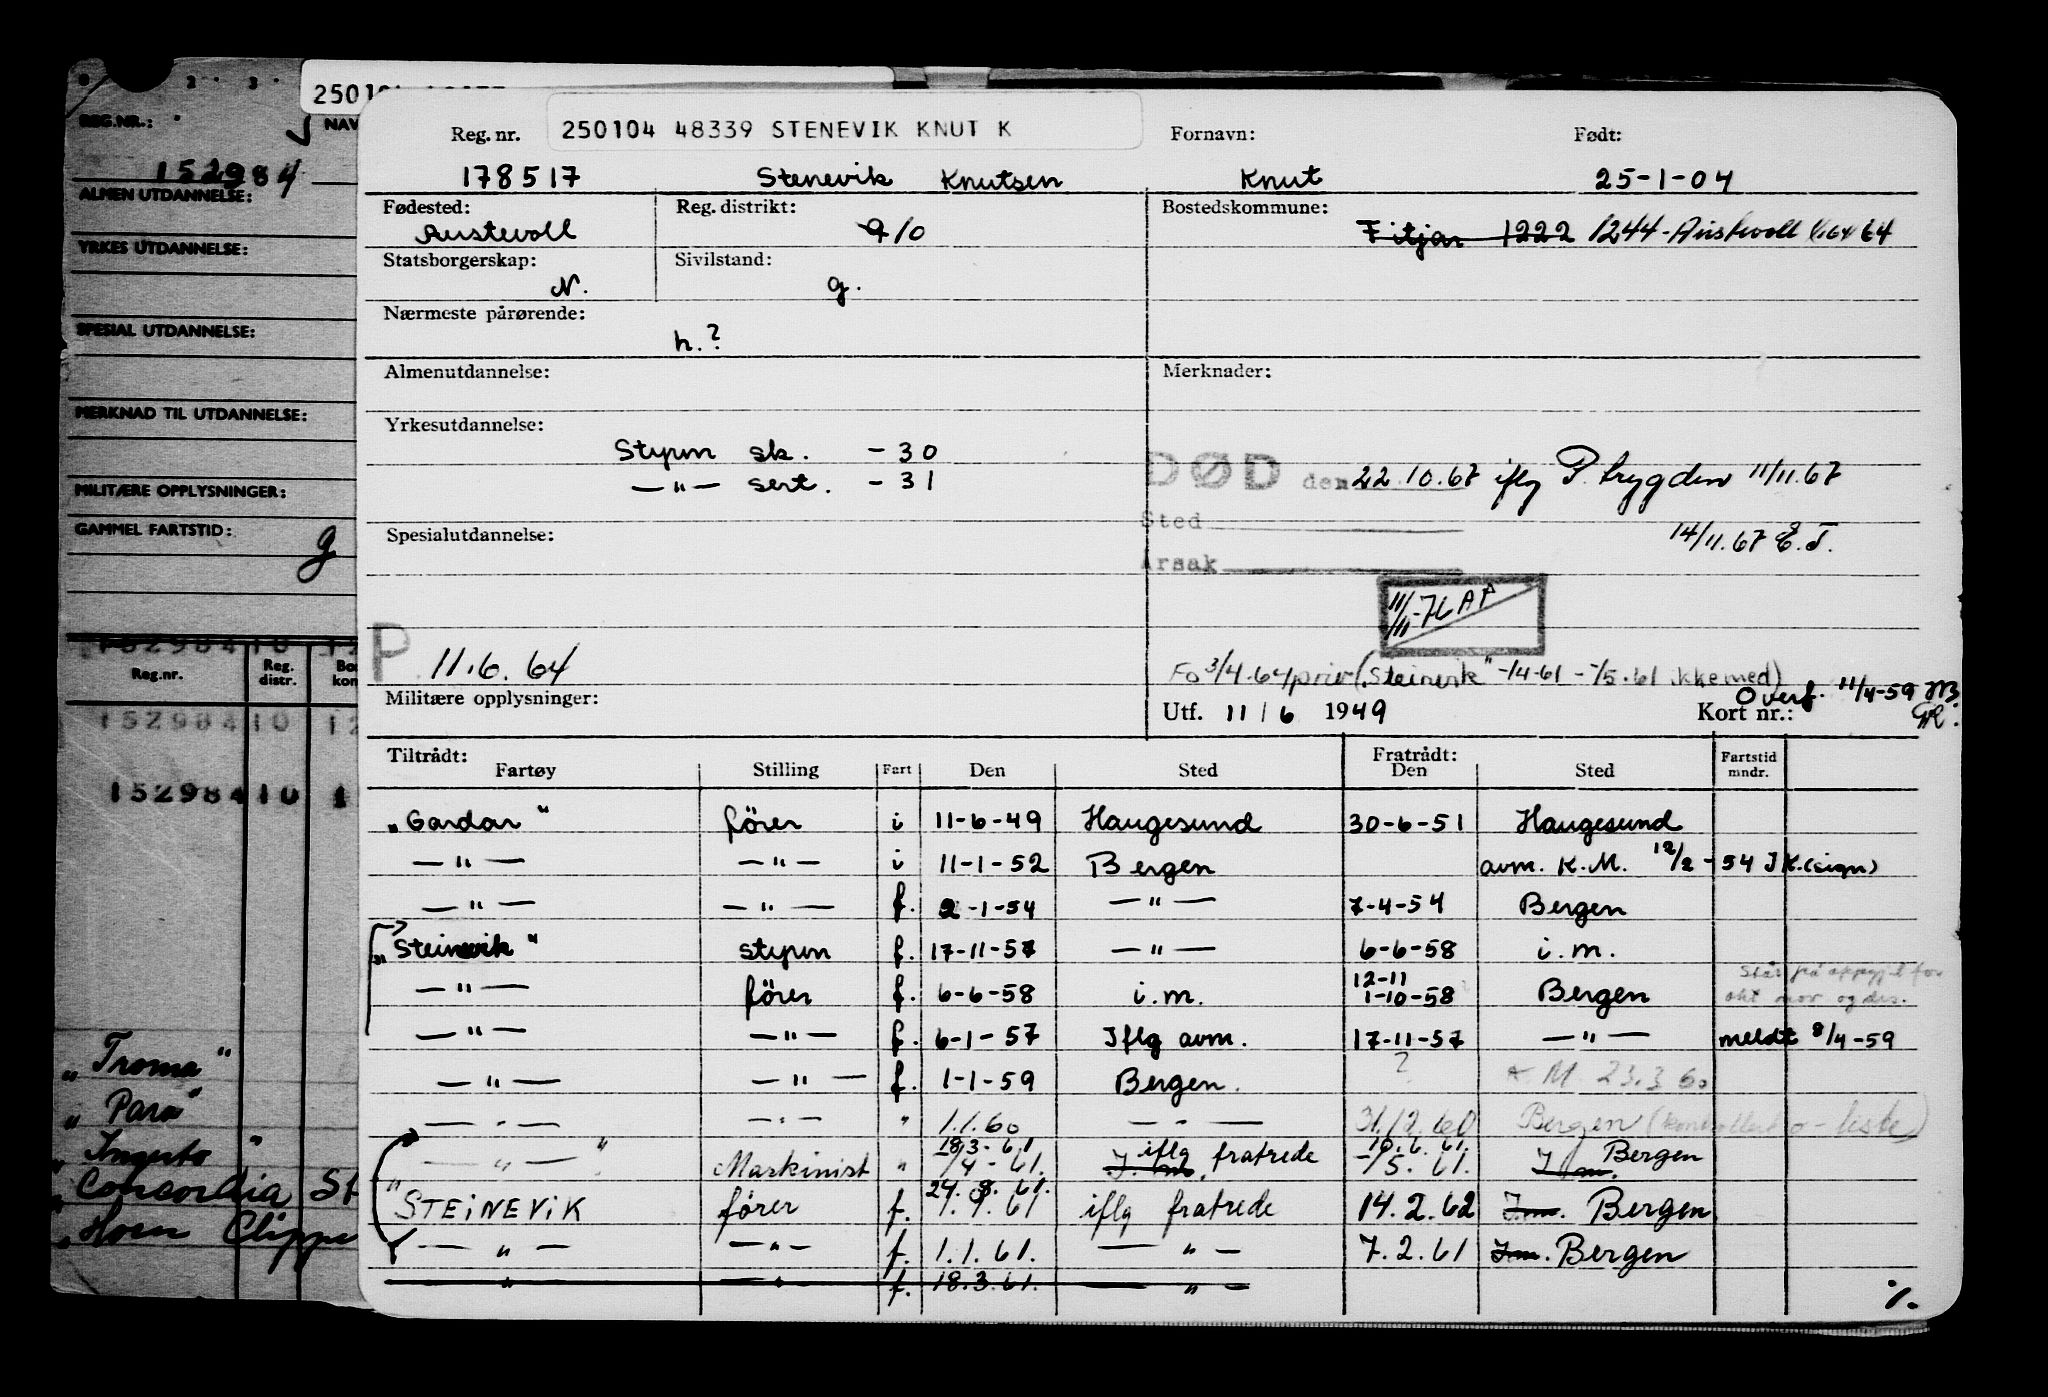 REG.NR.:
NAV
152984
ALMEN UTDANNELSE:
YRKES UTDANNELSE:
SPESIAL UTDANNELSE:
MERKNAD TIL UTDANNELSE:
MILITÆRE OPPLYSNINGER:
GAMMEL FARTSTID: g
152984 10
Reg.nr. Reg. distr. Bo kon
152984 10 12
152984 10 1
„Troma"
„Para"
Concordia St
Horn Clippe
Reg. nr. 250104 48339 STENEVIK KNUT K Fornavn: Født:
178517 Stenevik Knutsen Knut 25-1-04
Fødested: Reg. distrikt: Bostedskommune:
Austevoll 9 10 Fitjar 1222 1244-Austevoll
Statsborgerskap: Sivilstand:
N. g.
Nærmeste pårørende:
h.?
Almenutdannelse: Merknader:
Yrkesutdannelse:
Styrm sk. - 30
—"— sert. - 31
DØD den 22.10.67 iflg P. trygden 11/11.67
Sted
14/11.67 E.T.
Årsak
Spesialutdannelse:
11/11-76 AP
P 11.6.64
Fo 3/4.64 priv („Steinevik" -1/4-61 - -/5.61 ikke med)
Overf. 11/4-59
Militære opplysninger: Utf. 11/6 1949 Kort nr.:
Tiltrådt: Fratrådt:
Fartøy Stilling Fart Den Sted Den Sted Fartstid mndr.
„Gardar" förer i 11-6-49 Haugesund 30-6-51 Haugesund
—"— —"— i 11-1-52 Bergen avm. K.M. 12/2-54 JK.(sign)
—"— —"— f. 2-1-54 —"— 7-4-54 Bergen
„Steinevik" styrm f. 17-11-57 —"— 6-6-58 i.m.
12-11
—"— förer f. 6-6-58 i.m. 1-10-58 Bergen
—"— —"— f. 6-1-57 Iflg avm. 17-11-57 —"— meldt 8/4-59
—"— —"— f. 1-1-59 Bergen. ? K M 23.3.60
—"— —"— " 1.1.60 —"— 31.12.60 Bergen
18/3-61 iflg 10.6.61. Bergen
—"— Maskinist " /4-61. I.m. fratrede -/5.61. I.m.
24.8.61.
„STEINEVIK förer f. 1.9.61 iflg fratrede 14.2.62 I.m. Bergen
—"— —"— f. 1.1.61. —"— 7.2.61 I.m. Bergen
—"— —"— f. 18.3.61. —"—